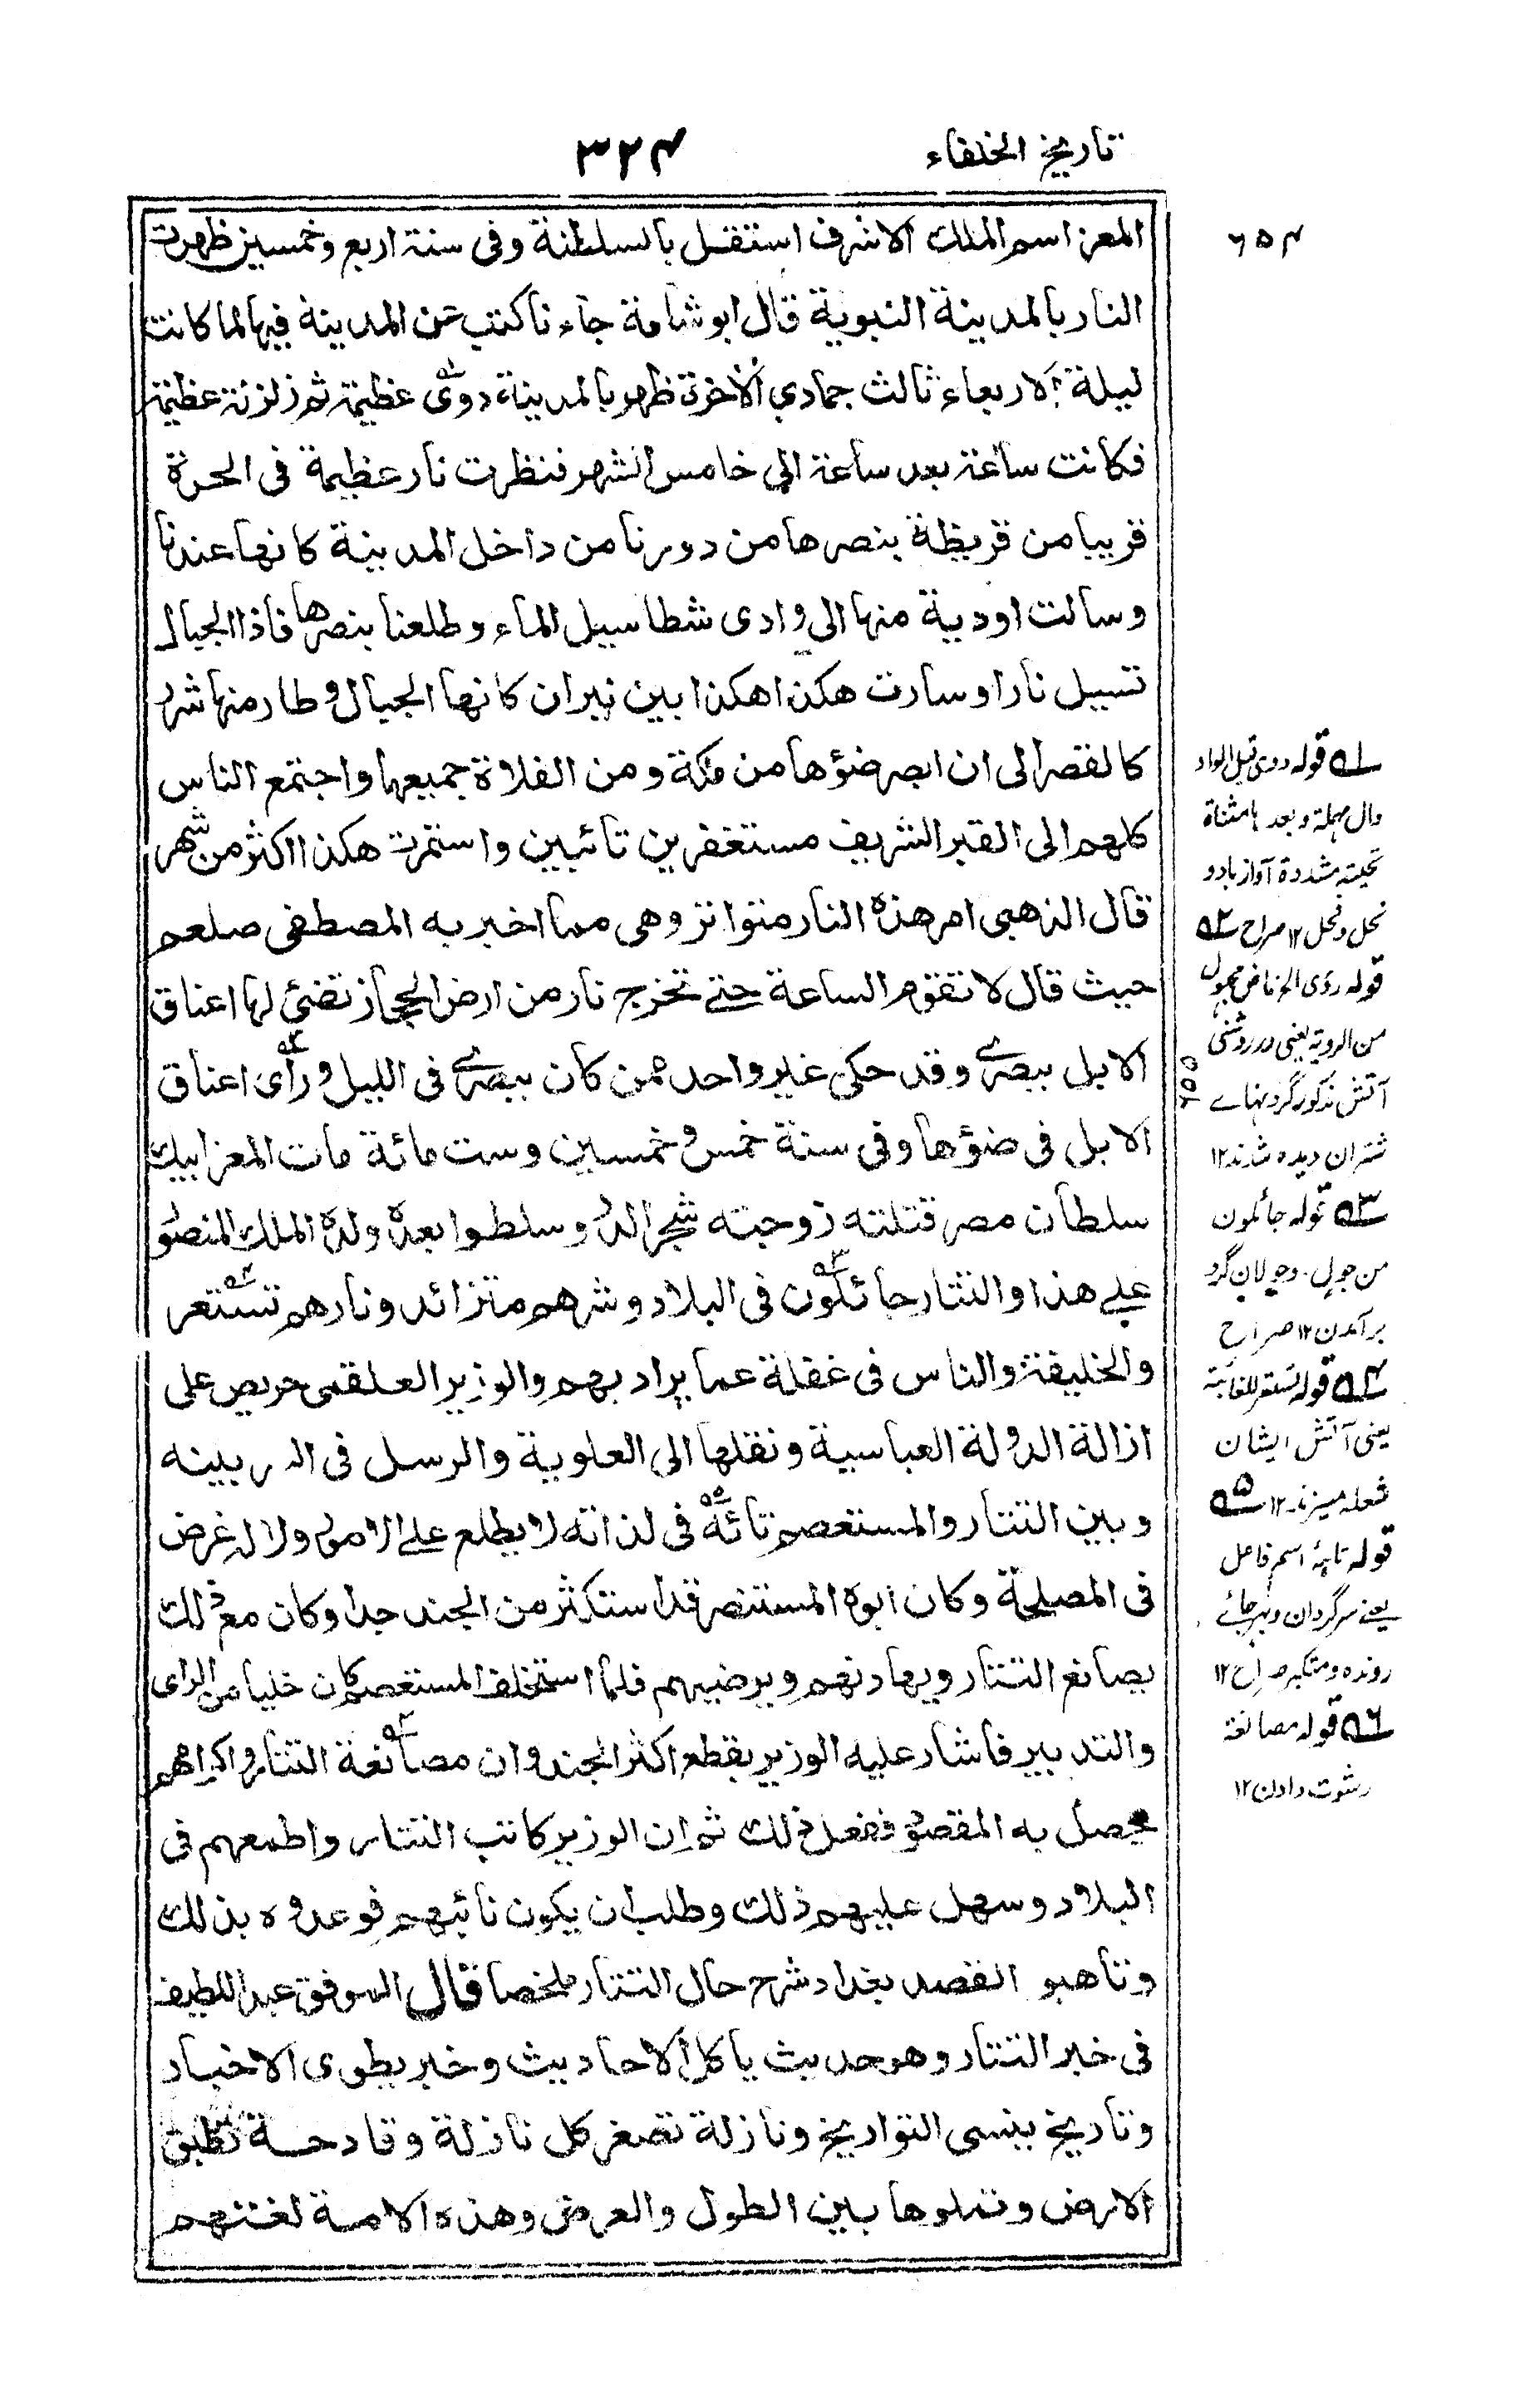 تاريخ الخلفاء
٣٢٤
المعز اسم الملك الاشرف استقل بالسلطنة وفى سنة اربع وخمسين ظهرت
النار بالمدينة النبوية قال ابو شامة جاءنا كتب من المدينة فيها لما كانت
ليلة الاربعاء ثالث جمادي الاخرة ظهر بالمدينة دوى عظيمة ثم زلزلة عظيمة
فكانت ساعة بعد ساعة الى خامس الشهر فنظرت نار عظيمة فى الحرة
قريبا من قريظة ينصرها من دورنا من داخل المدينة كانها عندنا
وسالت اودية منها الى وادى شطا سيل الماء وطلعنا بنصرها فاذا الجبال
تسيل نارا وسارت هكذا هكذا بين نيران كانها الجبال وطار منها شرر
كالقصر الى ان ابصر ضؤها من مكة ومن الفلاة جميعها واجتمع الناس
كلهم الى القبر الشريف مستغفرين تائبين واستمرت هكذا اكثر من شهر
قال الذهبى امر هذه النار متواتر وهى مما اخبر به المصطفى صلعم
حيث قال لا تقوم الساعة حتے تخرج نار من ارض الحجاز تضئ لها اعناق
الابل ببصرے وقد حكى غير واحد ممن كان ببصرے فى الليل ورأى اعناق
الابل فى ضؤها وفى سنة خمس وخمسين وست مائة مات المعز ايبك
سلطان مصر قتلته زوجته شجر الدر وسلطوا بعده ولده الملك المنصور
علے هذا والتتار جائلون فى البلاد وشرهم متزائد ونارهم تستعر
والخليفة والناس فى غفلة عما يراد بهم والوزير العلقمى حريص على
ازالة الدولة العباسية ونقلها الى العلوية والرسل فى السر بينه
وبين التتار والمستعصم تائه فى لذاته لا يطلع علے الامور ولا له غرض
فى المصلحة وكان ابوه المستنصر قد استكثر من الجند جدا وكان مع ذلك
يصانع التتار ويهادنهم ويرضيهم فلما استخلف المستعصم كان خليا من الراى
والتدبير فاشار عليه الوزير بقطع اكثر الجند وان مصانعة التتار واكرامهم
يحصل به المقصود ففعل ذلك ثم ان الوزير كاتب التتار واطمعهم فى
البلاد وسهل عليهم ذلك وطلب ان يكون نائبهم فوعدوه بذلك
وتاهبو القصد بغداد شرح حال التتار ملخصا قال الموفق عبد اللطيف
فى خبر التتار وهو حديث ياكل الاحاديث وخبر يطوى الاخبار
وتاريخ ينسى التواريخ ونازلة تصغر كل نازلة وقادحة تطبق
الارض وتملوها بين الطول والعرض وهذه الامة لغتهم
٦٥٤
٦٥٥
١ قوله دوى قبل الواد
دال مهملة وبعد ها مثناة
تحيته مشددة آواز باد و
نحل و فحل ١٢ صراح ٢
قوله رؤى الخ ماض مجهول
من الروية يعنى در روشنى
آتش مذكور گردنهاے
شتران ديده شدند ١٢
٣ قوله جائلون
من جول وجولان گرد
برآمدن ١٢ صراح
٤ قوله تستعر
يعنى آتش ايشان
شعله ميزند ١٢ ٥
قوله تايه اسم فاعل
يعنے سرگردان و بهر جائے
رونده و متكبر صراح ١٢
٦ قوله مصانعة
رشوت دادن ١٢